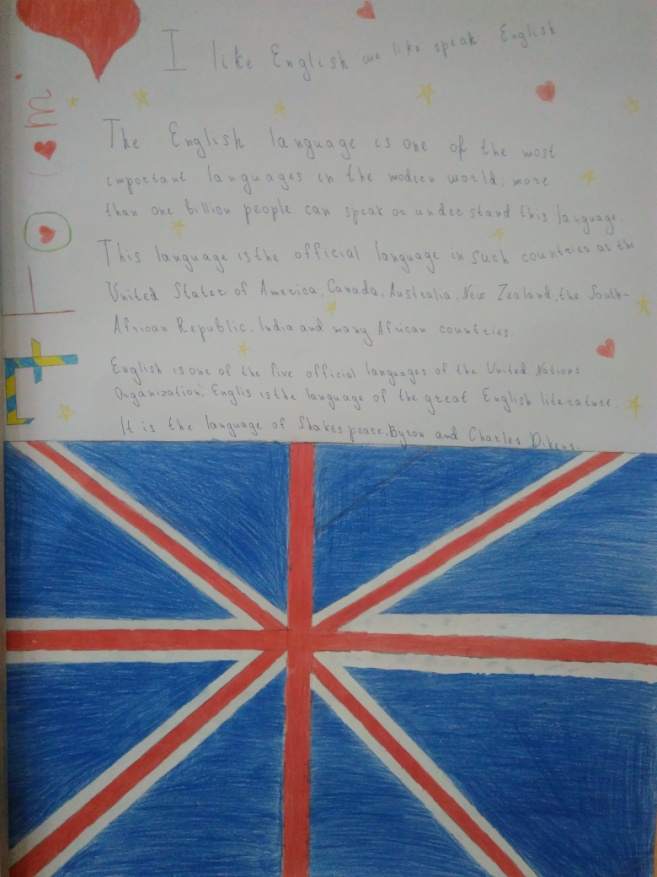 I like English we like speak English
The English language is one of the most
important languages in the modern world; more
than one billion people can speak or understand this language.
This language is the official language in such countries as the
United States of America, Canada, Australia, New Zealand, the South-
African Republic, India and many African countries.
English is one of the five official languages of the United Nations
Organization, Englis is the language of the great English literature.
It is the language of Shakespeare, Byron and Charles Dikens.